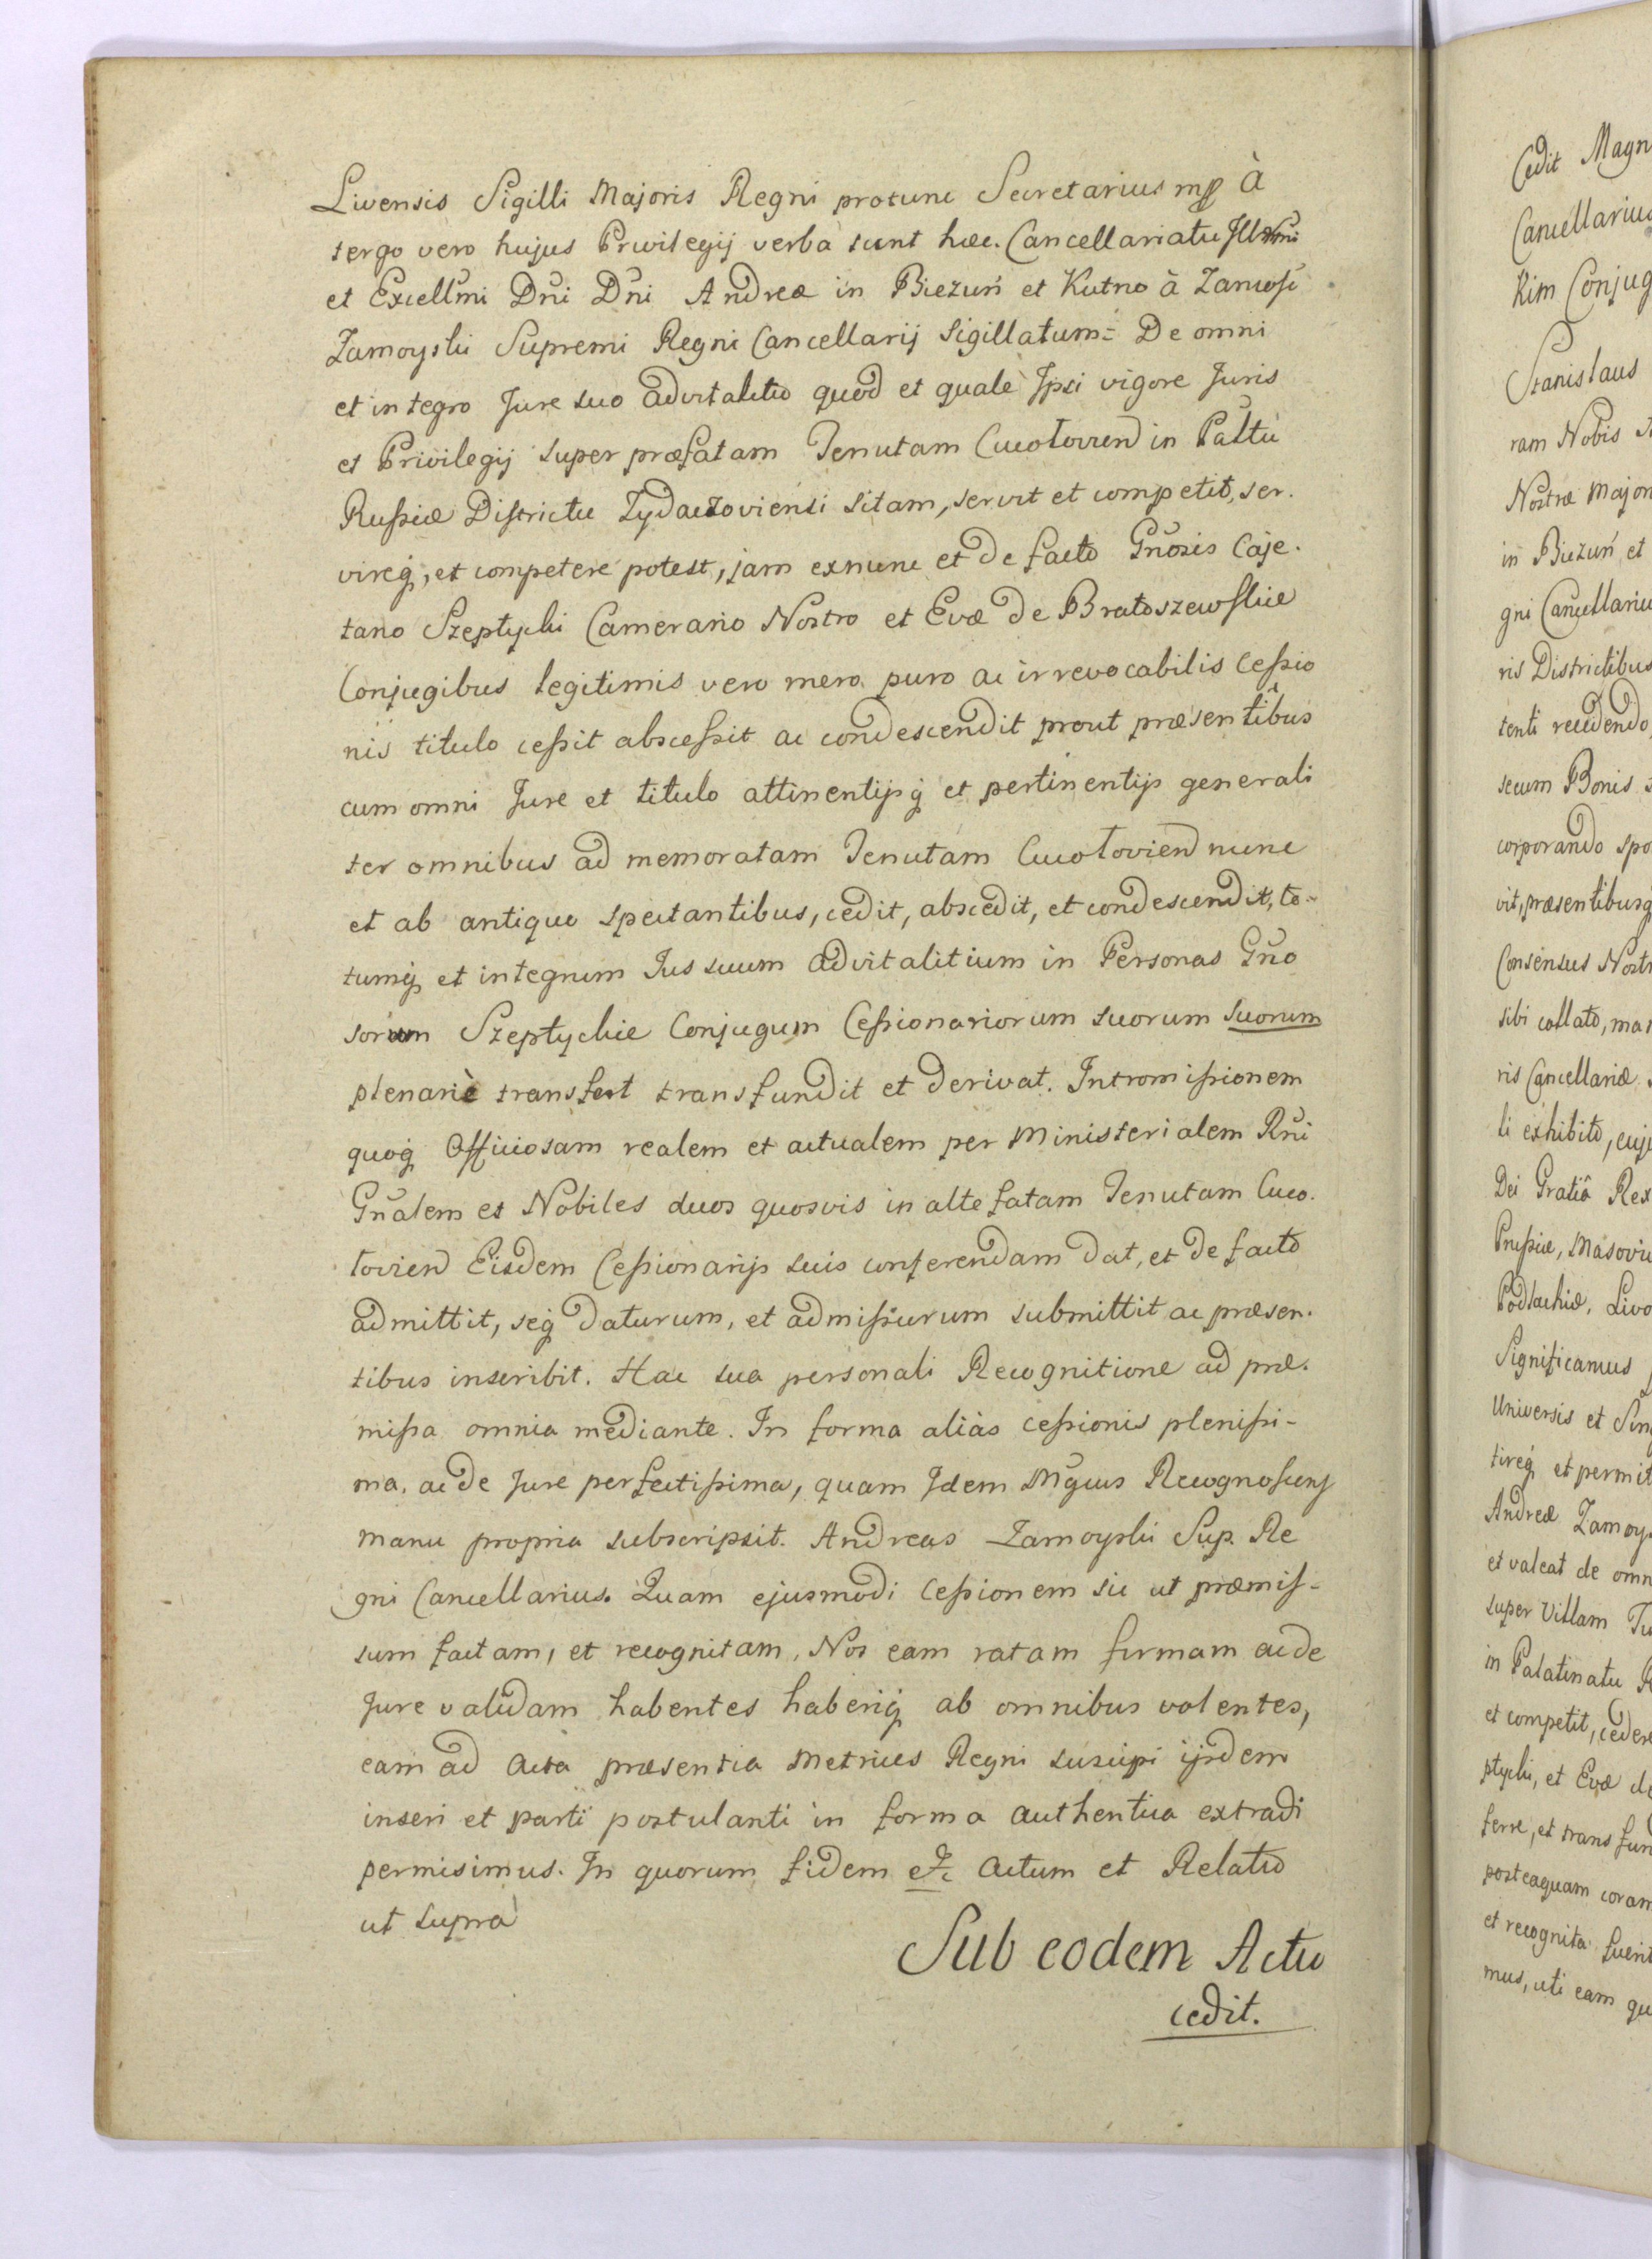 Livensis Sigilli Majoris Regni protunc Secretarius mp À
tergo vero hujus Privilegij verba sunt hæc. Cancellariatu Illrmi
et Excellm̃i Dñi Dñi Andreæ in Bieżuń et Kutno à Zamość
Zamoyski Supremi Regni Cancellarij Sigillatum= De omni
et integro Jure suo advitalitio quod et quale Ipsi vigore Juris
et Privilegij super præfatam Tenutam Cucołovien in Palt̃u
Russiæ Districtu Zydaczoviensi sitam, servit et competit, ser.
vireq̃, et competere potest, jam exnunc et de facto Gñosis Caje.
tano Szeptycki Camerario Nostro et Evæ de Bratoszewskie
Conjugibus legitimis vero mero puro ac irrevocabilis Cessio
nis titulo cessit abscessit ac condescendit prout præsentibus
cum omni Jure et titulo attinentijsq̃ et pertinentijs generali
ter omnibus ad memoratam Tenutam Cucołovien nunc
et ab antiquo spectantibus, cedit, abscedit, et condescendit, to-
tumq̃ et integrum Jus suum advitalitium in Personas Gño
sorum Szeptyckie Conjugum Cessionariorum suorum suorum
plenariè transfert transfundit et derivat. Intromissionem
quoq̃ Officiosam realem et actualem per Ministerialem Rñi
Gñalem et Nobiles duos quosvis in alte fatam Tenutam Cuco.
łovien Eisdem Cessionarijs suis conferendam dat, et de facto
admittit, seq̃ daturum, et admissurum submittit ac præsen.
tibus inscribit. Hac sua personali Recognitione ad præ.
missa omnia mediante. In forma aliàs cessionis plenissi-
ma. ac de Jure perfectissima, quam Idem Mg̃cus Recognoscens
manu propria subscripsit. Andreas Zamoyski Sup. Re
gni Cancellarius. Quam ejusmodi Cessionem sic ut præmis-
sum factam, et recognitam, Nos eam ratam firmam ac de
Jure validam habentes haberiq̃ ab omnibus volentes,
eam ad Acta præsentia Metrices Regni suscipi ijsdem
inseri et parti postulanti in forma authentica extradi
permisimus. In quorum fidem etc Actum et Relatio
ut supra
Sub eodem Actu
cedit.
Cedit Magn
Cancellarius
Kim Conjug
Stanislaus
ram Nobis
Nostræ Major
in Bieżuń et
gni Cancellariu
ris Districtibus
tenti recedendo
secum Bonis
corporando spo
vit, præsentibusq
Consensus Nostr
sibi collato, ma
ris Cancellariæ
li exhibito, cuj
Dei Gratiâ Rex
Prussiæ, Masovi
Podlachiæ, Livo
Significamus
Universis et Sin
tireq̃ et permit
Andreæ Zamoy
et valeat de omn
super Villam Tu
in Palatinatu R
et competit, ceder
ptycki, et Evæ de
ferre, et transfun
posteaquam coram
et recognita fuerit
mus, uti eam qu